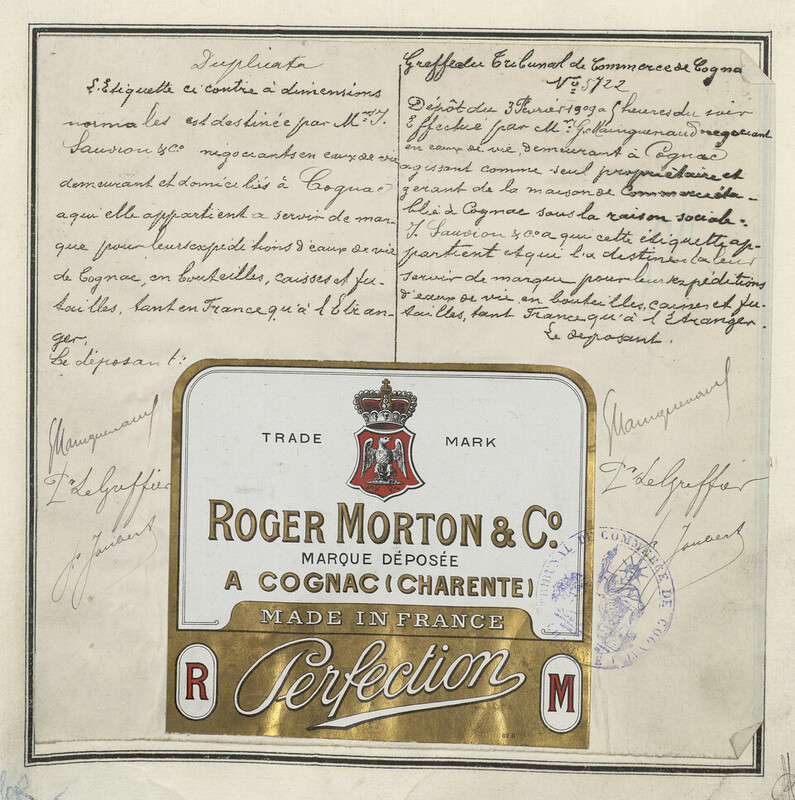 Duplicata
L'Etiquette ci contre à dimensions
normales est destinée par Mrs J.
Sauvion & Co négociants en eaux de vie
demeurant et domiciliés à Cognac
a qui elle appartient a servir de mar-
que pour leurs expéditions d'eaux de vie
de Cognac, en bouteilles, caisses et fu-
tailles, tant en France qu'à l'Etran-
ger.
Le déposant:
GMainguenaud
Pr Le Greffier
Joubert
Greffe du Tribunal de Commerce de Cognac
No 5722
Dépôt du 3 Février 1909 a heures du soir
Effectué par Mr G. Mainguenaud négociant
en eaux de vie, demeurant à Cognac
agissant comme seul propriétaire et
gérant de la maison de Commerce éta-
blie à Cognac sous la raison sociale:
J. Sauvion & Co a qui cette étiquette ap-
partient et qui l'a destinée a leur
servir de marque pour leurs expéditions
d'eaux de vie en bouteilles, caisses et fu-
tailles, tant France qu'à l'Etranger.
Le déposant.
GMainguenaud
Pr Le Greffier
Joubert
TRADE MARK
ROGER MORTON & Co.
MARQUE DÉPOSÉE
A COGNAC (CHARENTE)
MADE IN FRANCE
Perfection
R M
TRIBUNAL DE COMMERCE DE COGNAC